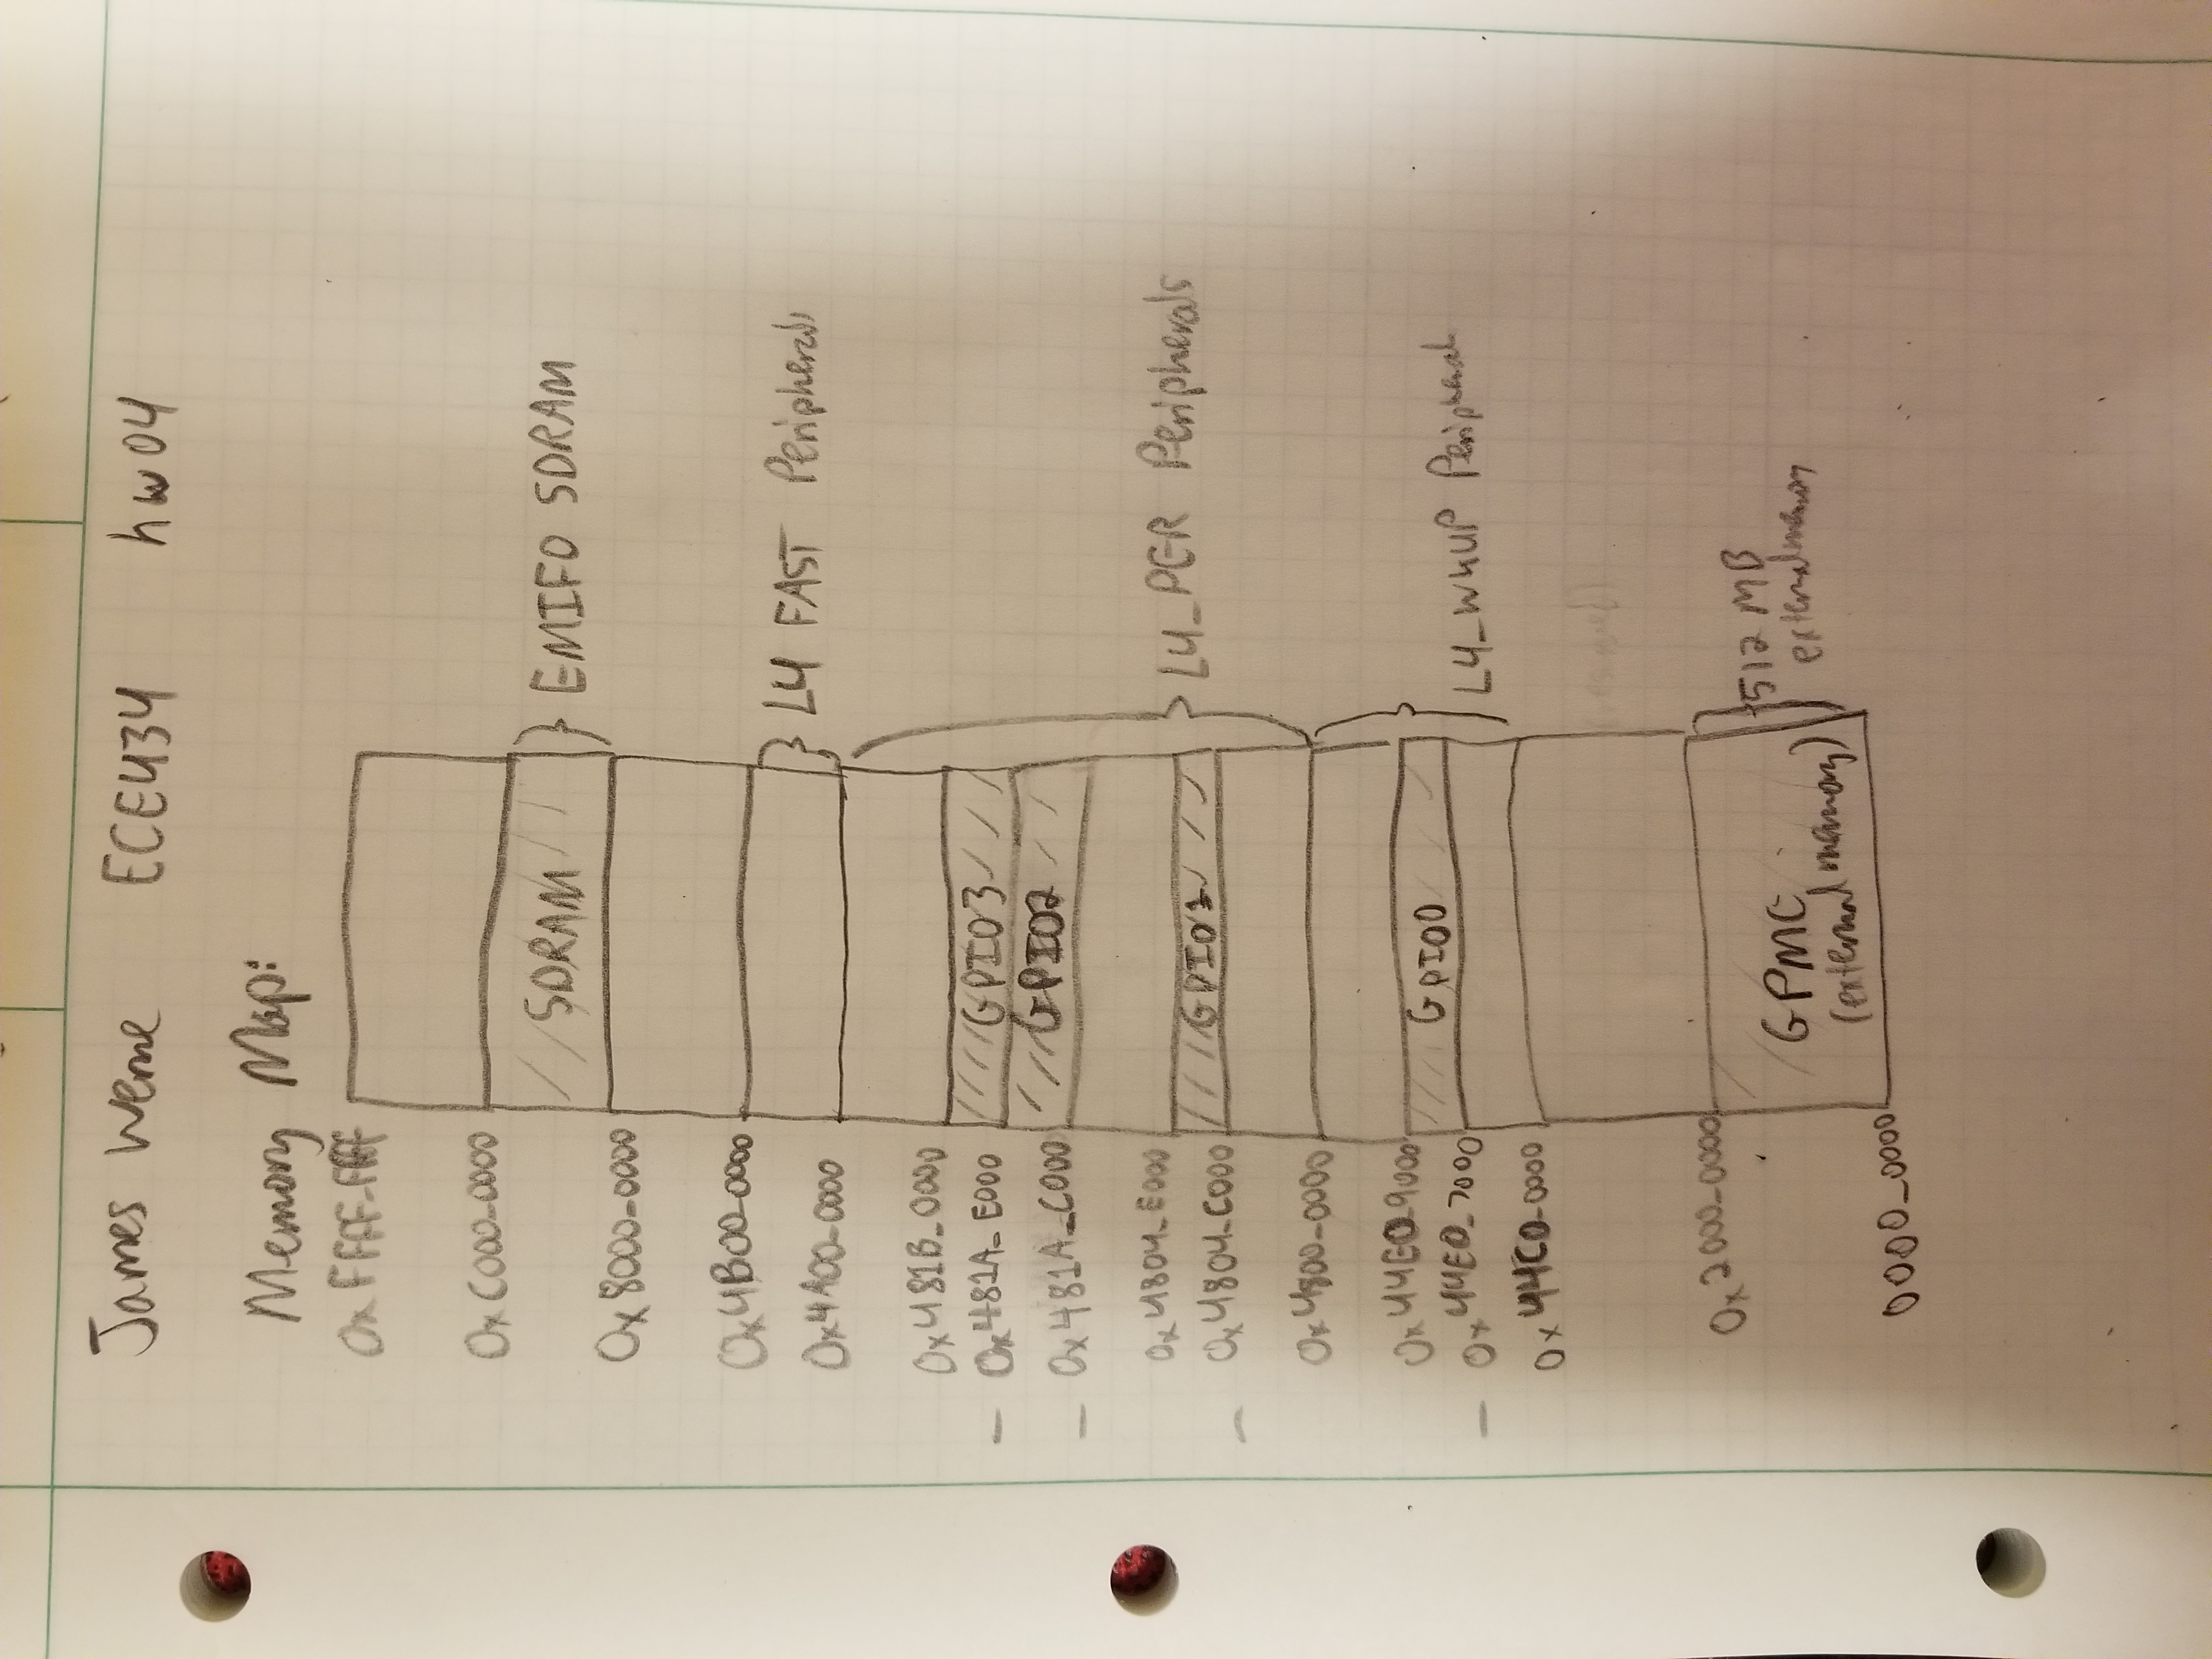 James Werne ECE434 hw04
Memory Map:
0xFFFF_FFFF
0xC000_0000
SDRAM } EMIF0 SDRAM
0x8000_0000
0x4B00_0000
} L4 FAST Peripherals
0x4A00_0000
0x481B_0000
GPIO3
– 0x481A_E000
GPIO2
– 0x481A_C000
0x4804_E000
} L4_PER Peripherals
GPIO1
– 0x4804_C000
0x4800_0000
0x44E0_9000
GPIO0
– 0x44E0_7000
} L4_WKUP Peripherals
0x44C0_0000
0x2000_0000
} 512 MB
GPMC external memory
(external memory)
0000_0000